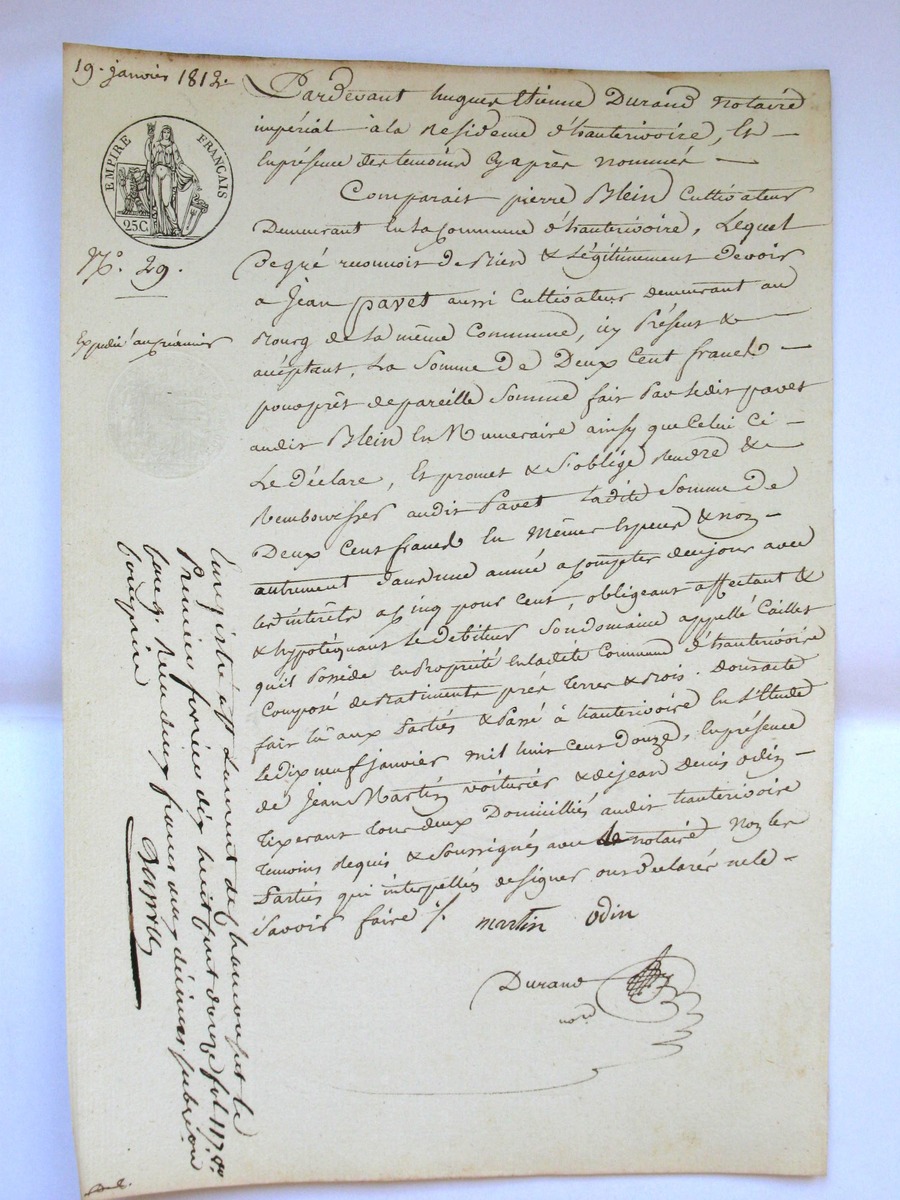 19. janvier 1812.
EMPIRE FRANÇAIS
25C
N.° 29.
Expédié au créancier
Pardevant hugues Etienne Durand notaire
impérial à la Residence d'hauterivoire, Et
En présence des temoins Cyaprès nommés
Comparait pierre Blein Cultivateur
Demeurant En la Commune d'hauterivoire, Lequel
De gré reconnoit de Bien & Légitimement devoir
a Jean pavet aussi Cultivateur demeurant au
Bourg de la même Commune, icy Présent &
acceptant, La Somme de Deux Cent francs
pour prêt de pareille Somme fait Par Ledit pavet
audit Blein En Numeraire ainsy que Celui Ci
Le déclare, Et promet & S'oblige Rendre &
Rembourser audit Pavet Ladite Somme de
Deux Cent francs En Mêmes Especes & non
autrement dans une année a Compter de ce jour avec
les intérêts a Cinq pour Cent, obligeant affectant &
& hypotéquant Le debiteur Son domaine appellé Caillet
qu'il Possède En Propriété En ladite Commune d'hauterivoire
Composé de Batiments prés terres & Bois. Dont acte
fait lû aux Parties & Passé à hauterivoire En l'Etude
Le dix neuf janvier mil huit Cent Douze, En présence
de Jean Martin voiturier & de jean Denis odin
tixerant tous deux Domiciliés audit hauterivoire
temoins Requis & Soussignés avec le notaire Non les
Parties qui interpellés de signer ont Declarés ne le
Savoir faire /.
martin odin
Durand
not.
Enregistré à St Laurent de chamousset le
Premier février dix huit cent douze fol. 117. 
Reçu deux francs deux décimes subvention
comprise